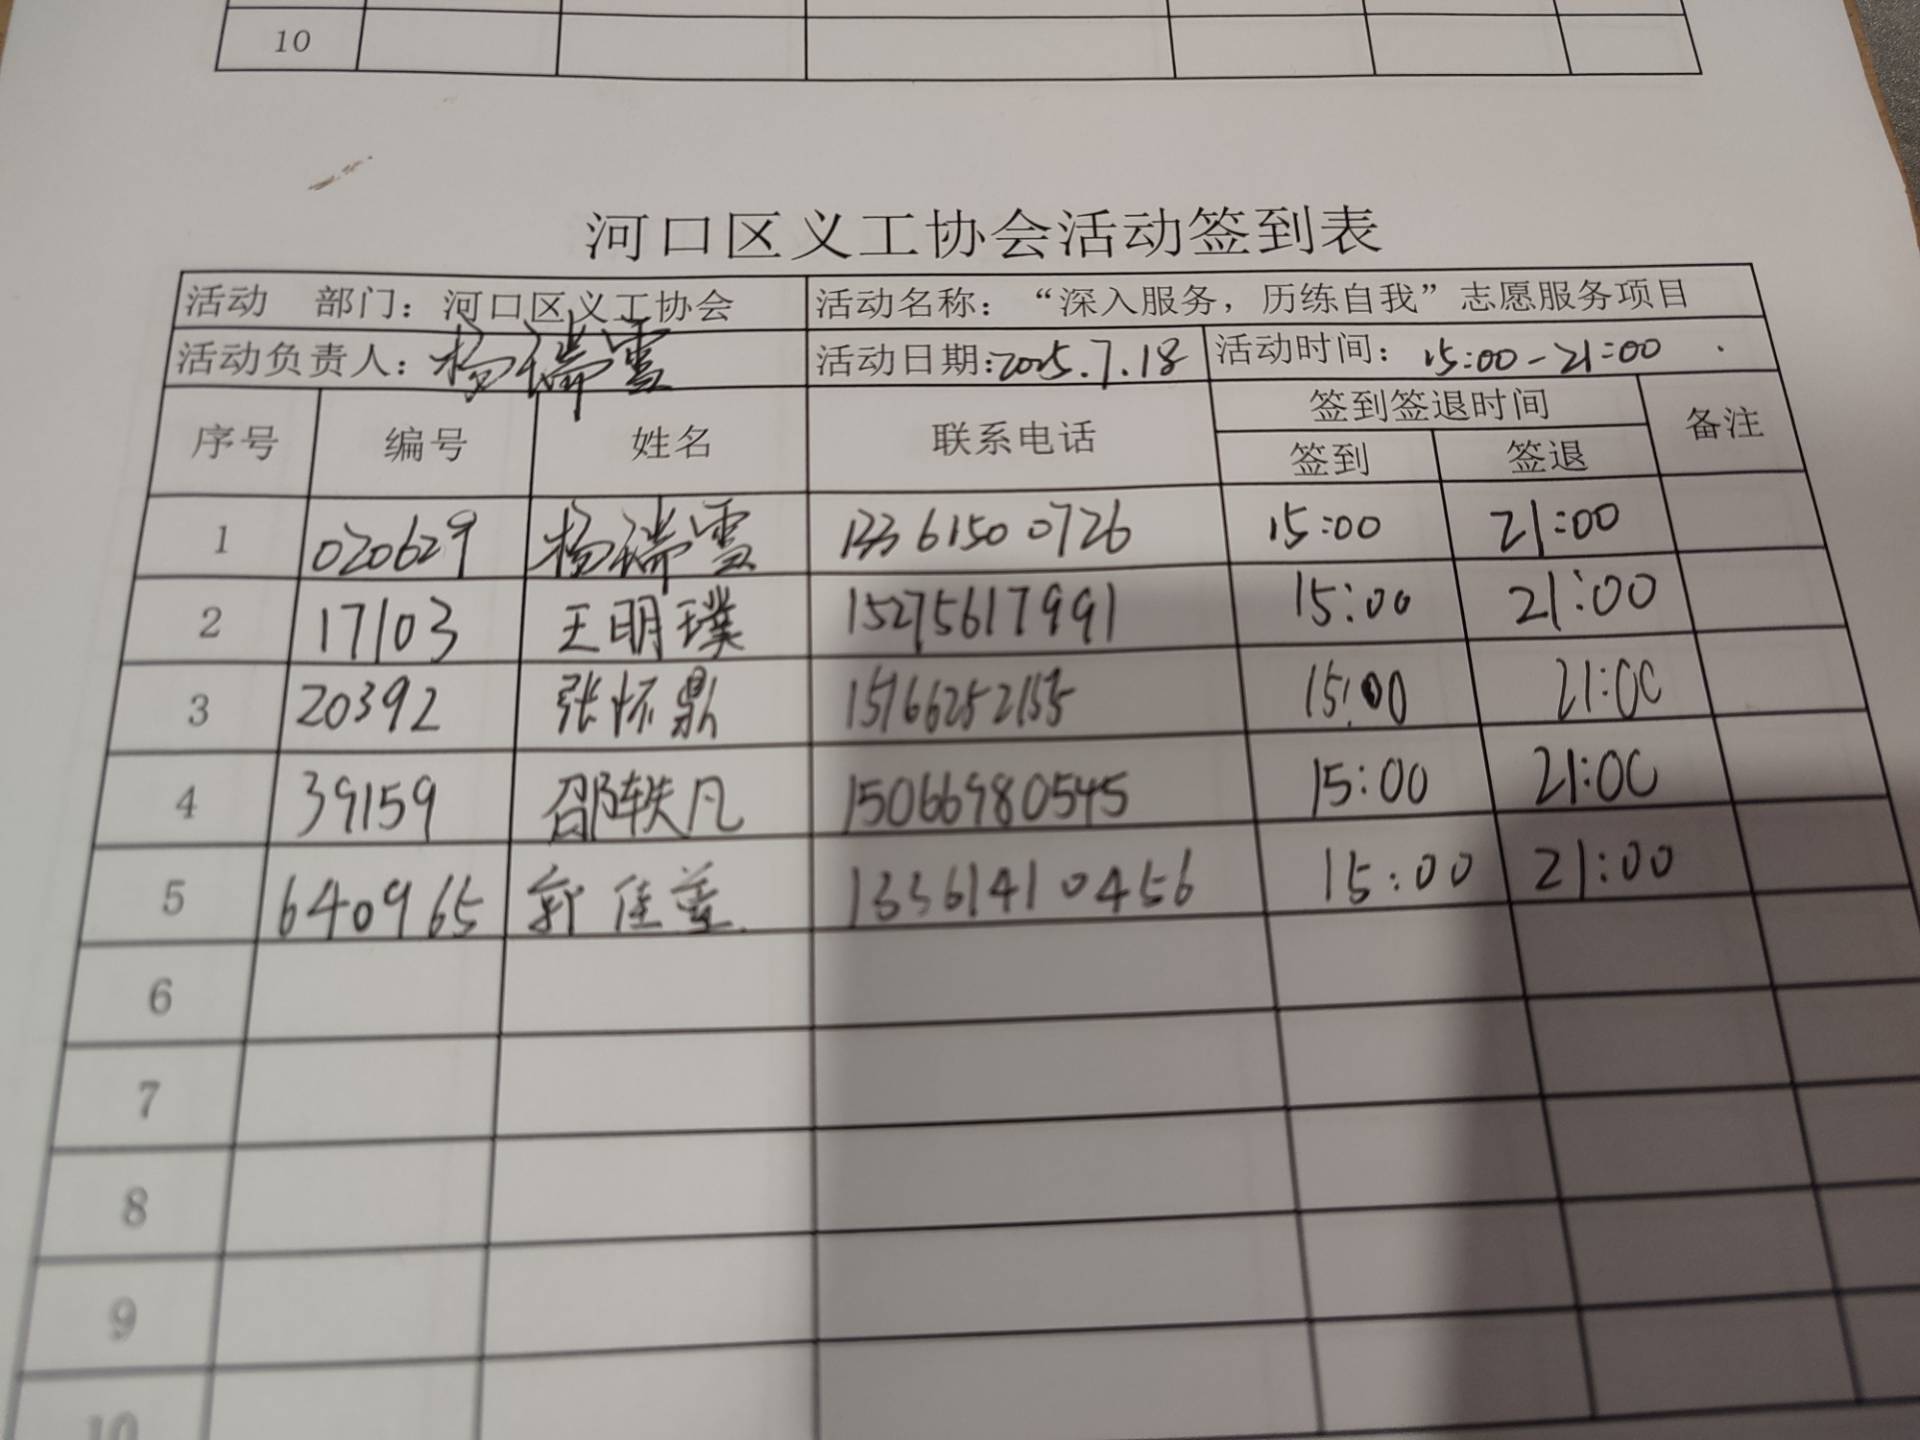 10
河口区义工协会活动签到表
活动 部门：河口区义工协会 活动名称：“深入服务，历练自我”志愿服务项目
活动负责人：杨瑞雪 活动日期：2025.7.18 活动时间：15:00-21:00
序号 编号 姓名 联系电话 签到签退时间 备注
签到 签退
1 020629 杨瑞雪 13361500726 15:00 21:00
2 17103 王明璞 15275617991 15:00 21:00
3 20392 张怀鼎 15:00 21:00
4 39159 邵轶凡 15066980545 15:00 21:00
5 640965 郭佳 13361410456 15:00 21:00
6
7
8
9
10